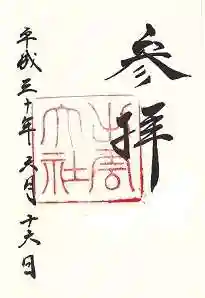 参拝
出雲
大社
平成三十年六月十六日